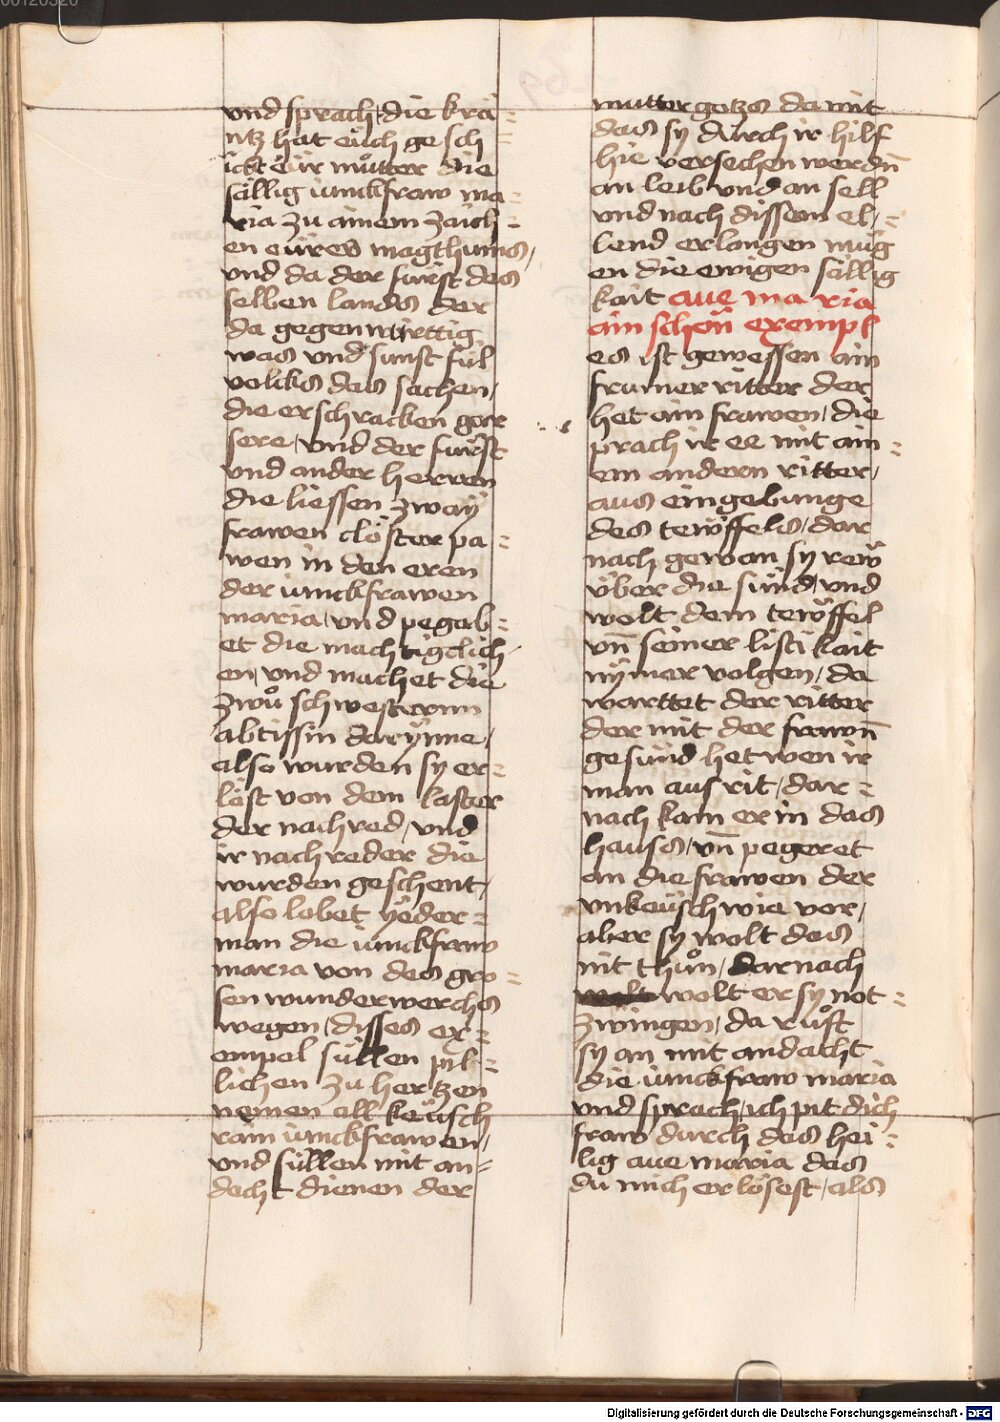 und sprach die krä=
ntz hat eüch gesch
ickt eür můtter die
sällig iunckfraw ma=
ria zu ainem zaich=
en eüres magthums,
und da der fürst des
selben lands der
da gegenwürttig
was und sunst fül
volcks das sachen,
die erschracken gar
sere, und der fürst
und ander herren
die liessen zwaÿ
frawen clöster pa=
wen in den eren
der iunckfrawen
maria, und pegab=
et die mächtigclich
en, und machet die
zwů schwesternn
abtissin darÿnne,
also wurden sy er=
löst von dem laster
der nachred, und
ir nachreder die
wurden geschent,
also lobet yeder=
man die iunckfraw
maria von des gro=
sen wunderwerches
wegen, disses ex=
empel süllen pil=
lichen zu hertzen
nemen all keüsch
rain iunckfrawen,
und süllen mit an=
dacht dienen der
mutter gotzs da mit
das sy durch ir hilf
hie versechen werdn̄
an leib und an sell
und nach dissem el,=
lend erlangen müg
en die ewigen sällig
kait aue ma ria
ain schön exempl
es ist gewessen ain
frumer ritter der
het ain frawen, die
prach ir ee mit ain=
em andern ritter,
aus eingebunge
des tewffels, dar
nach gewan sy rew
über die sünd, und
wolt dem tewffel
un̄ seiner listikait
nÿmer volgen, da
warttet der ritter
der mit der frawn̄
gesünd het wen ir
man aus rit, dar=
nach kam er in das
hauss, un̄ pegeret
an die frawen der
unkeüsch wie vor,
aber sy wolt das
nit thůn, darnach
wolt er sy not=
zwingen, da růft
sy an mit andacht
die iunckfraw maria
und sprach, ich pit dich
fraw durch das hei=
lig aue maria das
du mich erlösest, als
Digitalisierung gefördert durch die Deutsche Forschungsgemeinschaft - DFG